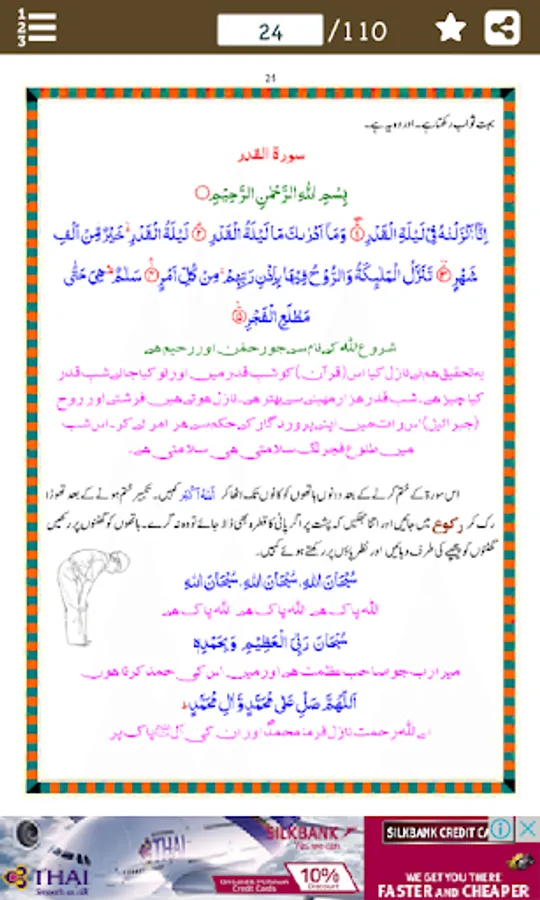 1
2
3
24 /110
24
بہت ثواب رکھتا ہے۔ اور وہ یہ ہے۔
سورۃ القدر
بِسْمِ اللّٰهِ الرَّحْمٰنِ الرَّحِيْمِ
اِنَّاۤ اَنْزَلْنٰهُ فِيْ لَيْلَةِ الْقَدْرِ ۝۱ وَمَاۤ اَدْرٰىكَ مَا لَيْلَةُ الْقَدْرِ ۝۲ لَيْلَةُ الْقَدْرِ خَيْرٌ مِّنْ اَلْفِ
شَهْرٍ ۝۳ تَنَزَّلُ الْمَلٰٓئِكَةُ وَالرُّوْحُ فِيْهَا بِاِذْنِ رَبِّهِمْ مِنْ كُلِّ اَمْرٍ ۝۴ سَلٰمٌ هِيَ حَتّٰى
مَطْلَعِ الْفَجْرِ ۝۵
شروع اللہ کے نام سے جو رحمٰن اور رحیم ہے
بہ تحقیق ہم نے نازل کیا اس (قرآن) کو شب قدر میں اور تو کیا جانے شب قدر
کیا چیز ہے۔ شب قدر ہزار مہینے سے بہتر ہے۔ نازل ہوتے ہیں فرشتے اور روح
(جبرائیل) اس رات میں اپنے پروردگار کے حکم سے ہر امر لے کر۔ اس شب
میں طلوع فجر تک سلامتی ہی سلامتی ہے۔
اس سورۃ کے ختم کرنے کے بعد دونوں ہاتھوں کو کانوں تک اٹھا کر اَللّٰهُ اَكْبَر کہیں۔ تکبیر ختم ہونے کے بعد تھوڑا
رک کر رکوع میں جائیں اور اتنا جھکیں کہ پشت پر اگر پانی کا قطرہ بھی ڈالا جائے تو وہ نہ گرے۔ ہاتھوں کو گھٹنوں پر رکھیں
گھٹنوں کو پیچھے کی طرف دبائیں اور نظر پاؤں پر رکھتے ہوئے کہیں۔
سُبْحَانَ اللّٰهِ، سُبْحَانَ اللّٰهِ، سُبْحَانَ اللّٰهِ
اللہ پاک ہے اللہ پاک ہے اللہ پاک ہے
سُبْحَانَ رَبِّيَ الْعَظِيْمِ وَبِحَمْدِهٖ
میرا رب جو صاحب عظمت ہے اور میں اس کی حمد کرتا ہوں
اَللّٰهُمَّ صَلِّ عَلٰى مُحَمَّدٍ وَّاٰلِ مُحَمَّدٍ
اے اللہ رحمت نازل فرما محمدؐ اور ان کی آل پاک پر
THAI
SILKBANK
Yes we can
THAI
Smooth as silk
Credit Cards
10%
Discount
SILKBANK CREDIT CA
WE GET YOU THERE
FASTER AND CHEAPER